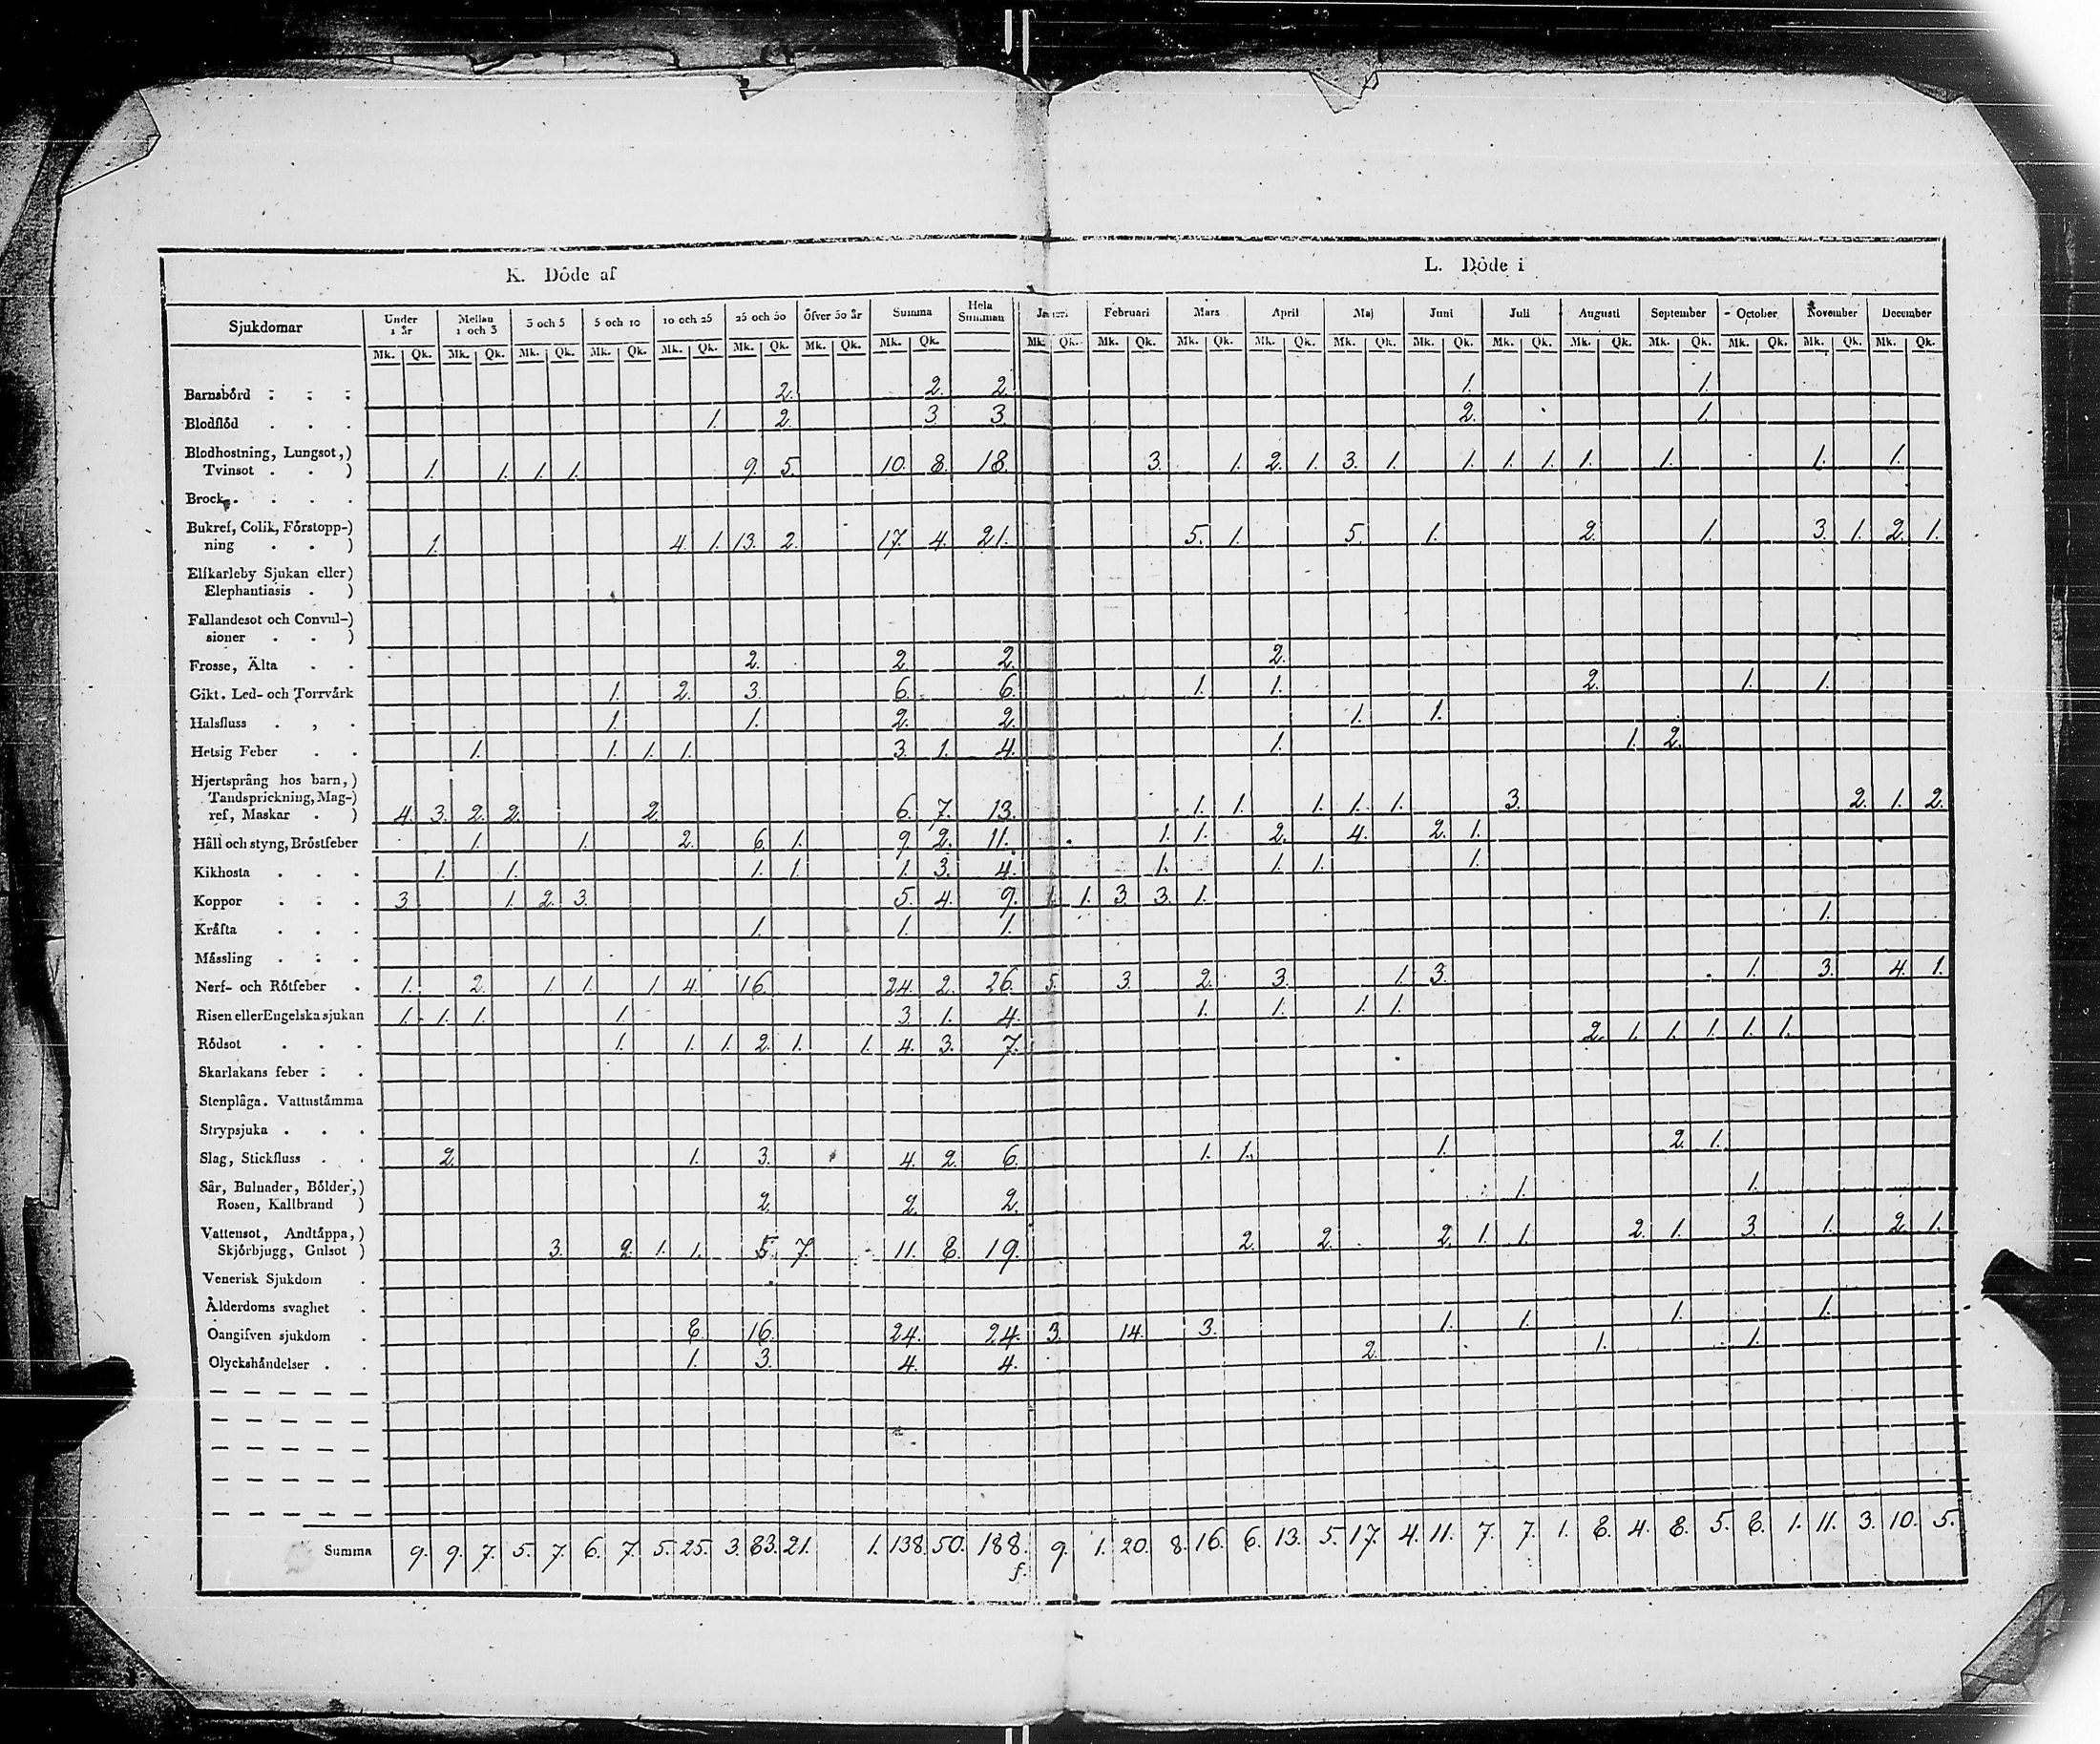 K. Döde af L. Döde i
Sjukdomar Under 1 år Mellan 1 och 3 3 och 5 5 och 10 10 och 25 25 och 50 Öfver 50 år Summa Hela Summan Januari Februari Mars April Maj Juni Juli Augusti September October November December
Mk. Qk. Mk. Qk. Mk. Qk. Mk. Qk. Mk. Qk. Mk. Qk. Mk. Qk. Mk. Qk. Mk. Qk. Mk. Qk. Mk. Qk. Mk. Qk. Mk. Qk. Mk. Qk. Mk. Qk. Mk. Qk. Mk. Qk. Mk. Qk. Mk. Qk. Mk. Qk.
Barnsbörd 2. 2. 2. 1. 1.
Blodflöd . . . 1. 2. 3. 3. 2. 1.
Blodhostning, Lungsot,)
Tvinsot . . ) 1. 1. 1. 1. 9. 5. 10. 8. 18. 3. 1. 2. 1. 3. 1. 1. 1. 1. 1. 1. 1. 1.
Brock . . . .
Bukref, Colik, Förstopp-)
ning . . ) 1. 4. 1. 13. 2. 17. 4. 21. 5. 1. 5. 1. 2. 1. 3. 1. 2. 1.
Elfkarleby Sjukan eller)
Elephantiasis . )
Fallandesot och Convul-)
sioner . . )
Frosse, Älta . . 2. 2. 2. 2.
Gikt. Led- och Torrvärk 1. 2. 3. 6. 6. 1. 1. 2. 1. 1.
Halsfluss . , . 1. 1. 2. 2. 1. 1.
Hetsig Feber . . 1. 1. 1. 1. 3. 1. 4. 1. 1. 2.
Hjertsprång hos barn,)
Tandsprickning, Mag-)
ref, Maskar . ) 4. 3. 2. 2. 2. 6. 7. 13. 1. 1. 1. 1. 1. 3. 2. 1. 2.
Håll och styng, Bröstfeber 1. 1. 2. 6. 1. 9. 2. 11. 1. 1. 2. 4. 2. 1.
Kikhosta . . . 1. 1. 1. 1. 1. 3. 4. 1. 1. 1. 1.
Koppor . . . 3. 1. 2. 3. 5. 4. 9. 1. 1. 3. 3. 1.
Kräfta . . . 1. 1. 1. 1.
Mässling . . .
Nerf- och Rötfeber . 1. 2. 1. 1. 1. 4. 16. 24. 2. 26. 5. 3. 2. 3. 1. 3. 1. 3. 4. 1.
Risen eller Engelska sjukan 1. 1. 1. 1. 3. 1. 4. 1. 1. 1. 1.
Rödsot . . . 1. 1. 1. 2. 1. 1. 4. 3. 7. 2. 1. 1. 1. 1. 1.
Skarlakans feber . .
Stenplåga. Vattustämma
Strypsjuka . . .
Slag, Stickfluss . . 2. 1. 3. 4. 2. 6. 1. 1. 1. 2. 1.
Sår, Bulnader, Bölder,)
Rosen, Kallbrand ) 2. 2. 2. 1. 1.
Vattensot, Andtäppa,)
Skjörbjugg, Gulsot ) 3. 2. 1. 1. 5. 7. 11. 8. 19. 2. 2. 2. 1. 1. 2. 1. 3. 1. 2. 1.
Venerisk Sjukdom .
Ålderdoms svaghet .
Oangifven sjukdom . 8. 16. 24. 24. 3. 14. 3. 1. 1. 1. 1.
Olyckshändelser . . 1. 3. 4. 4. 2. 1. 1.
Summa 9. 9. 7. 5. 7. 6. 7. 5. 25. 3. 83. 21. 1. 138. 50. 188. 9. 1. 20. 8. 16. 6. 13. 5. 17. 4. 11. 7. 7. 1. 8. 4. 8. 5. 8. 1. 11. 3. 10. 5.
f.